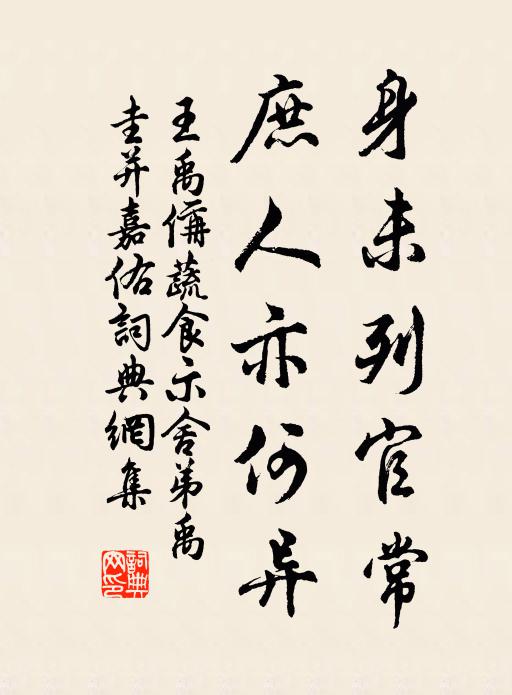 身未列官常
庶人亦何异
王禹偁蔬食示舍弟禹
圭并嘉佑詞典網集
詞典網印